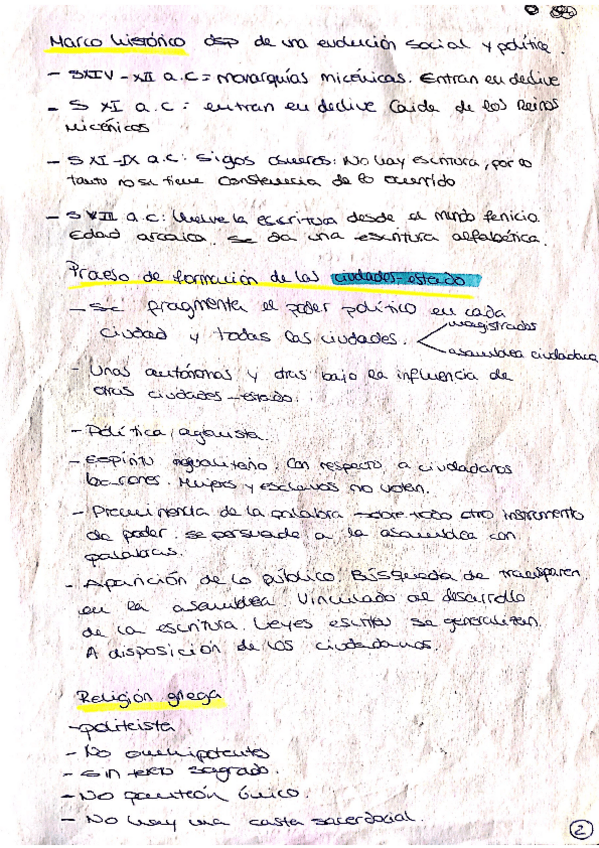 Marco histórico dsp de una evolución social y política.
- SXIV - XII a.C = monarquías micénicas. Entran en declive
- S XI a.C: entran en declive Caida de los Reinos
micénicos
- S XI-IX a.C: Sigos oscuros: No hay escritura, por lo
tanto no se tiene constenencia de lo ocurrido
- S VIII a.C: Vuelve la escritura desde el mundo fenicio.
Edad arcaica. Se da una escritura alfabética.
Proceso de formación de las ciudades-estado
- Se fragmenta el poder político en cada
ciudad y todas las ciudades. magistrados
asamblea ciudadana
- Unas autónomas y otras bajo la influencia de
otras ciudades-estado.
- Política agonista.
- Espíritu igualitario. Con respecto a ciudadanos
varones. Mujeres y esclavos no voten.
- Preeminencia de la palabra sobre todo otro instrumento
de poder. Se persuade a la asamblea con
palabras.
- Aparición de lo público. Búsqueda de transparen
en la asamblea. Vinculado al desarrollo
de la escritura. Leyes escritas se generalizan.
A disposición de los ciudadanos.
Religión griega
- politeista
- No omnipotente
- Sin texto sagrado.
- No panteón único.
- No hay una casta sacerdocial.
2